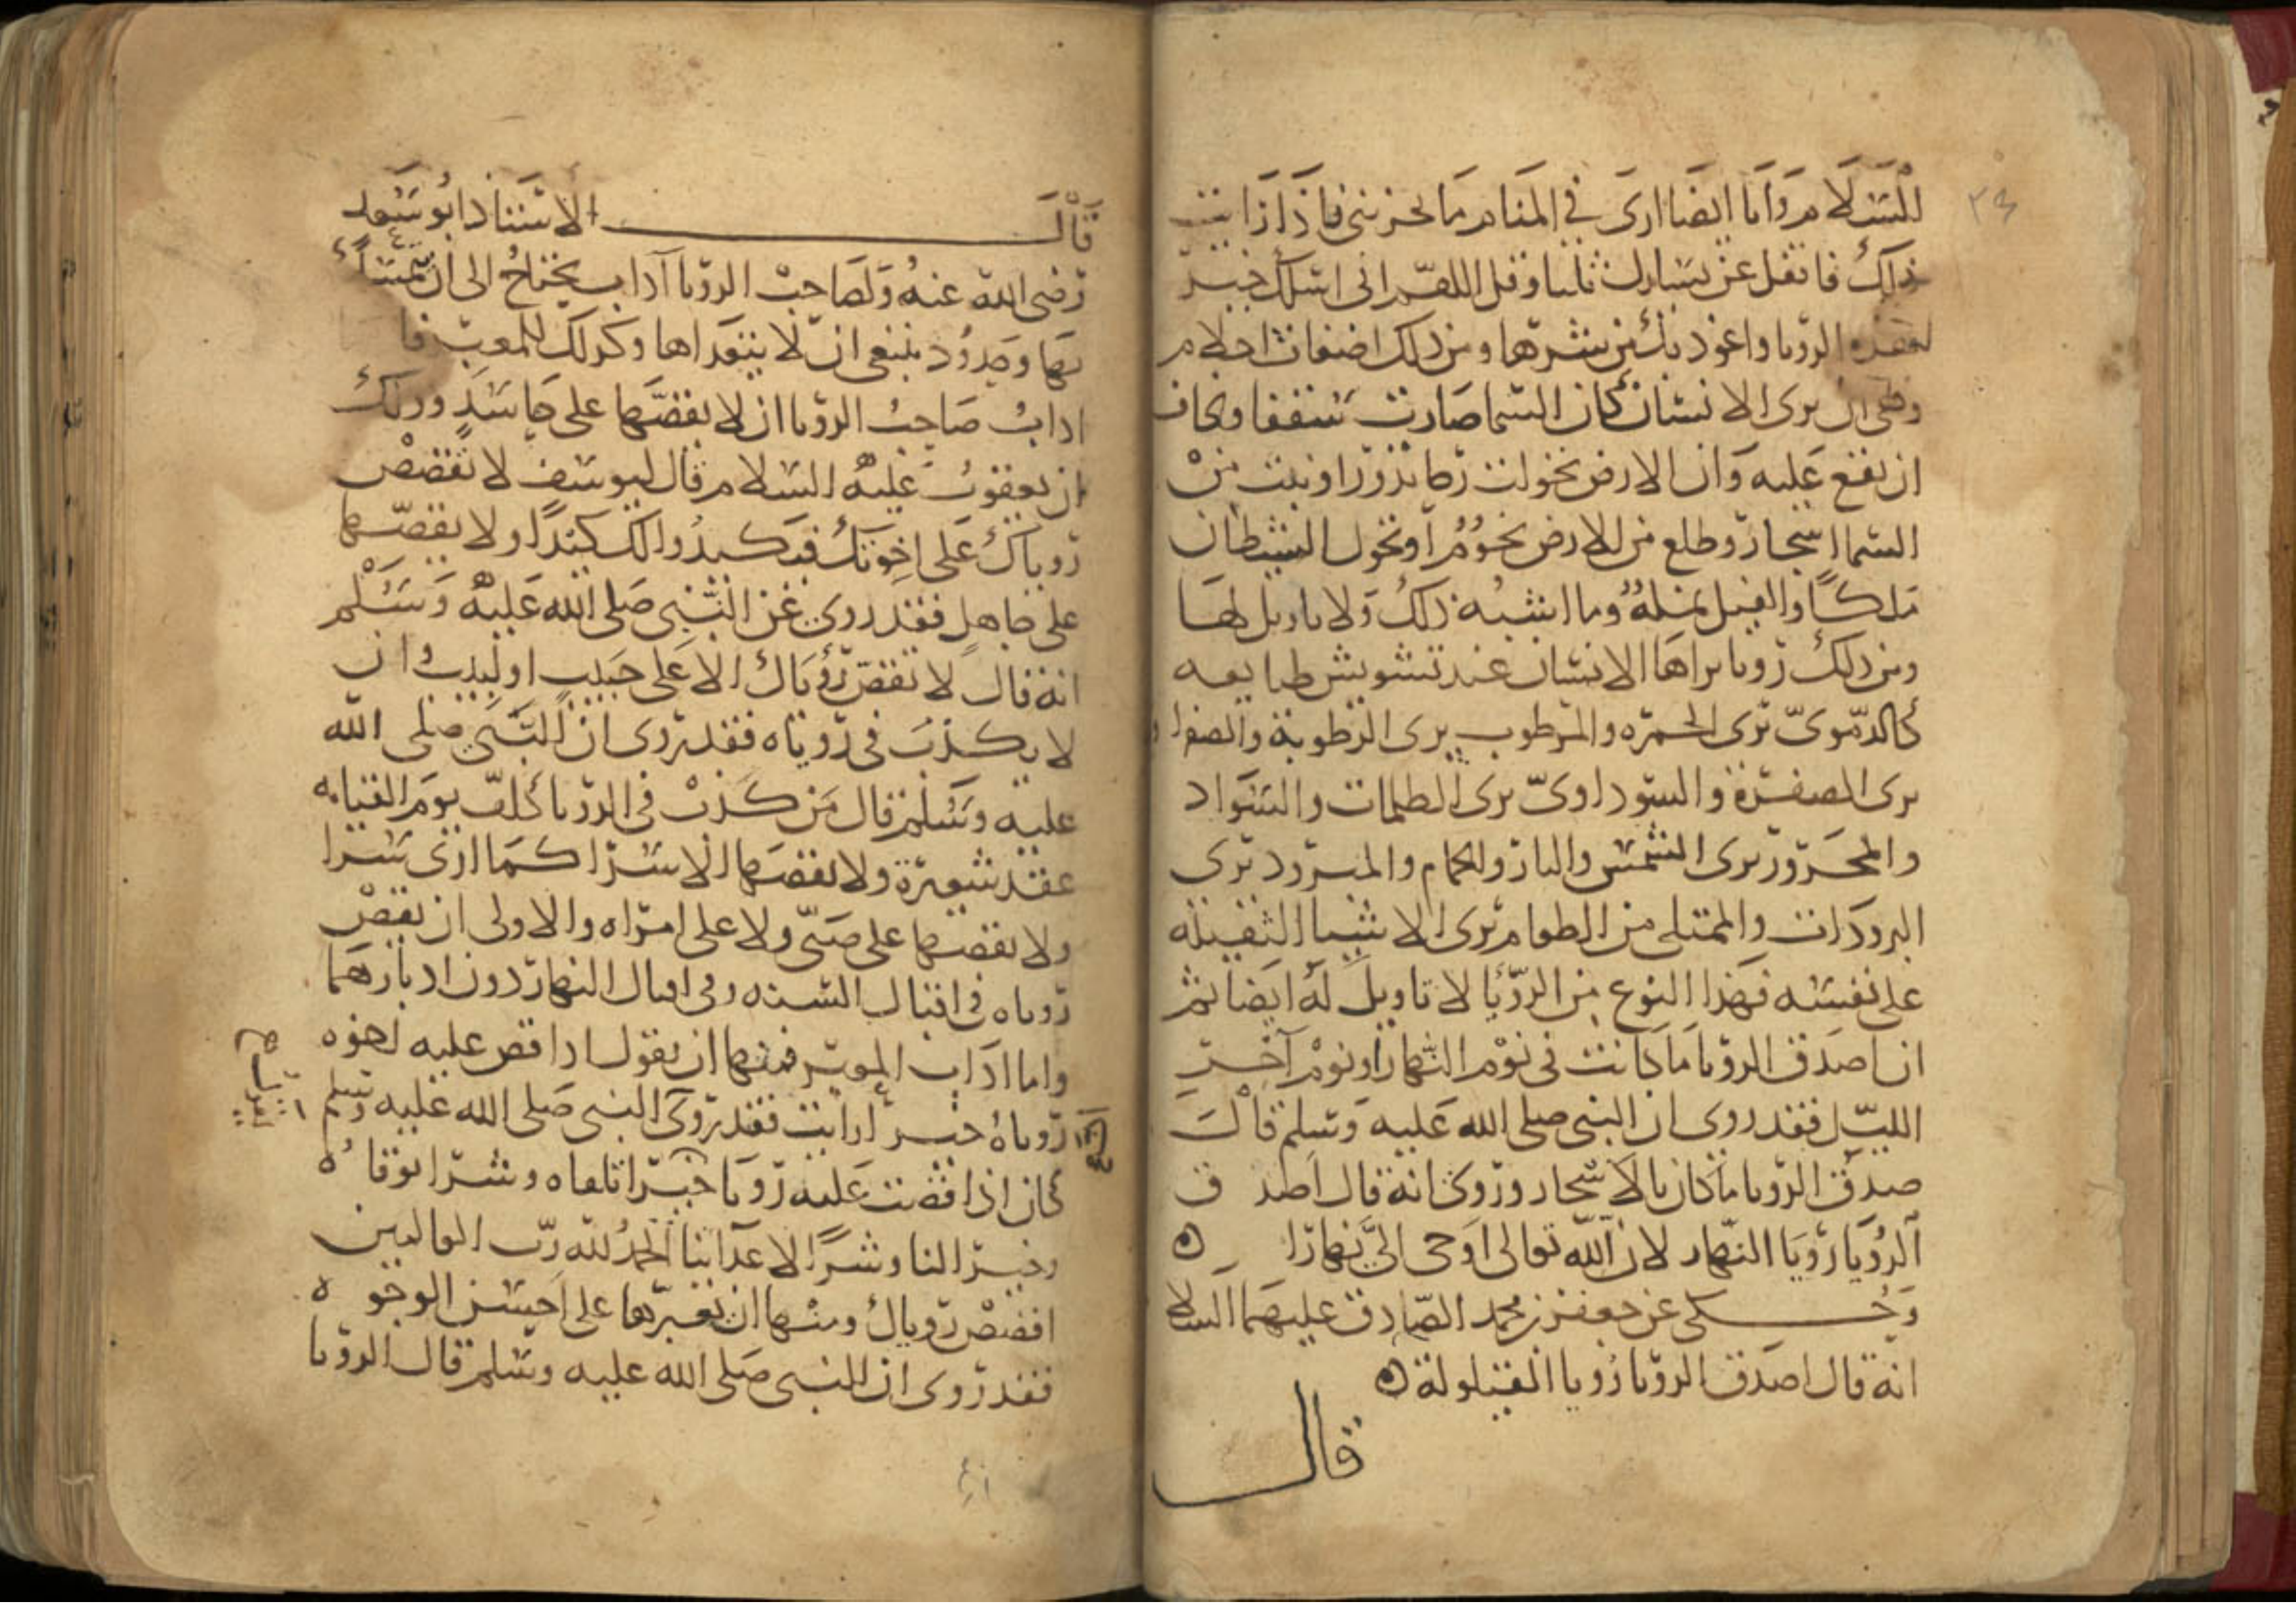 ٣٤
السلام وانا ايضا ارى في المنام ما يحزنني فاذا رايت
ذلك فاتفل عن يسارك ثلثا وقل اللهم اني اسلك خير
هذه الروىا واعوذ بك من شرها ومن ذلك اضغاث احلام
وهي ان يرى الانسان كان السما صارت سقفا ويخاف
ان يقع عليه وان الارض تحولت رحا تدور او نبت من
السما اشجار وطلع من الارض نجوم او تحول الشيطان
ملكا والفيل نملة وما اشبه ذلك ولا تاويل لها
ومن ذلك رويا يراها الانسان عند تشويش طبايعه
كالدموي يرى الحمره والمرطوب يرى الرطوبة والصفراوي
يرى الصفرة والسوداوي يرى الظلمات والسواد
والمحرور يرى الشمس والنار والحمام والمبرود يرى
البرودات والممتلي من الطعام يرى الاشيا الثقيلة
على نفسه فهذا النوع من الرؤيا لا تاويل له ايضا ثم
ان اصدق الرويا ما كانت في نوم النهار او نوم آخر
الليل فقد روي ان النبي صلى الله عليه وسلم قال
صدق الرويا ما كان بالاسحار وروي انه قال اصدق
الرويا رويا النهار لان الله تعالى اوحى الي نهارا
وحكى عن جعفر بن محمد الصادق عليهما السلا
انه قال اصدق الرويا رويا القيلولة
قال
قال الاستاذ ابو سعد
رضي الله عنه ولصاحب الرويا آداب يحتاج الى ان يتمسك
بها وحدود ينبغي ان لا يتعداها وكذلك للمعبر فا
اداب صاحب الرويا ان لا يقصها على حاسد وذلك
ان يعقوب عليه السلام قال ليوسف لا تقصص
روياك على اخوتك فيكيدوا لك كيدا ولا يقصها
على جاهل فقد روي عن النبي صلى الله عليه وسلم
انه قال لا تقص رؤياك الا على حبيب او لبيب وان
لا يكذب في روياه فقد روى ان النبي صلى الله
عليه وسلم قال من كذب في الرويا كلف يوم القيامه
عقد شعيرة ولا يقصها الا سرا كما ارى سرا
ولا يقصها على صبي ولا على امراه والاولى ان يقص
روياه في اقبال السنه وفي اقبال النهار دون ادبارهما
واما اداب المعبر فمنها ان يقول اذا قص عليه اخوه
روياه خير ارايت فقد روى النبي صلى الله عليه وسلم
كان اذا قصت عليه رويا خيرا تلقاه وشرا توقاه
وخير النا وشرا لاعداينا الحمد لله رب العالمين
اقصص روياك ومنها ان يعبرها على احسن الوجوه
فقد روى ان النبي صلى الله عليه وسلم قال الرويا